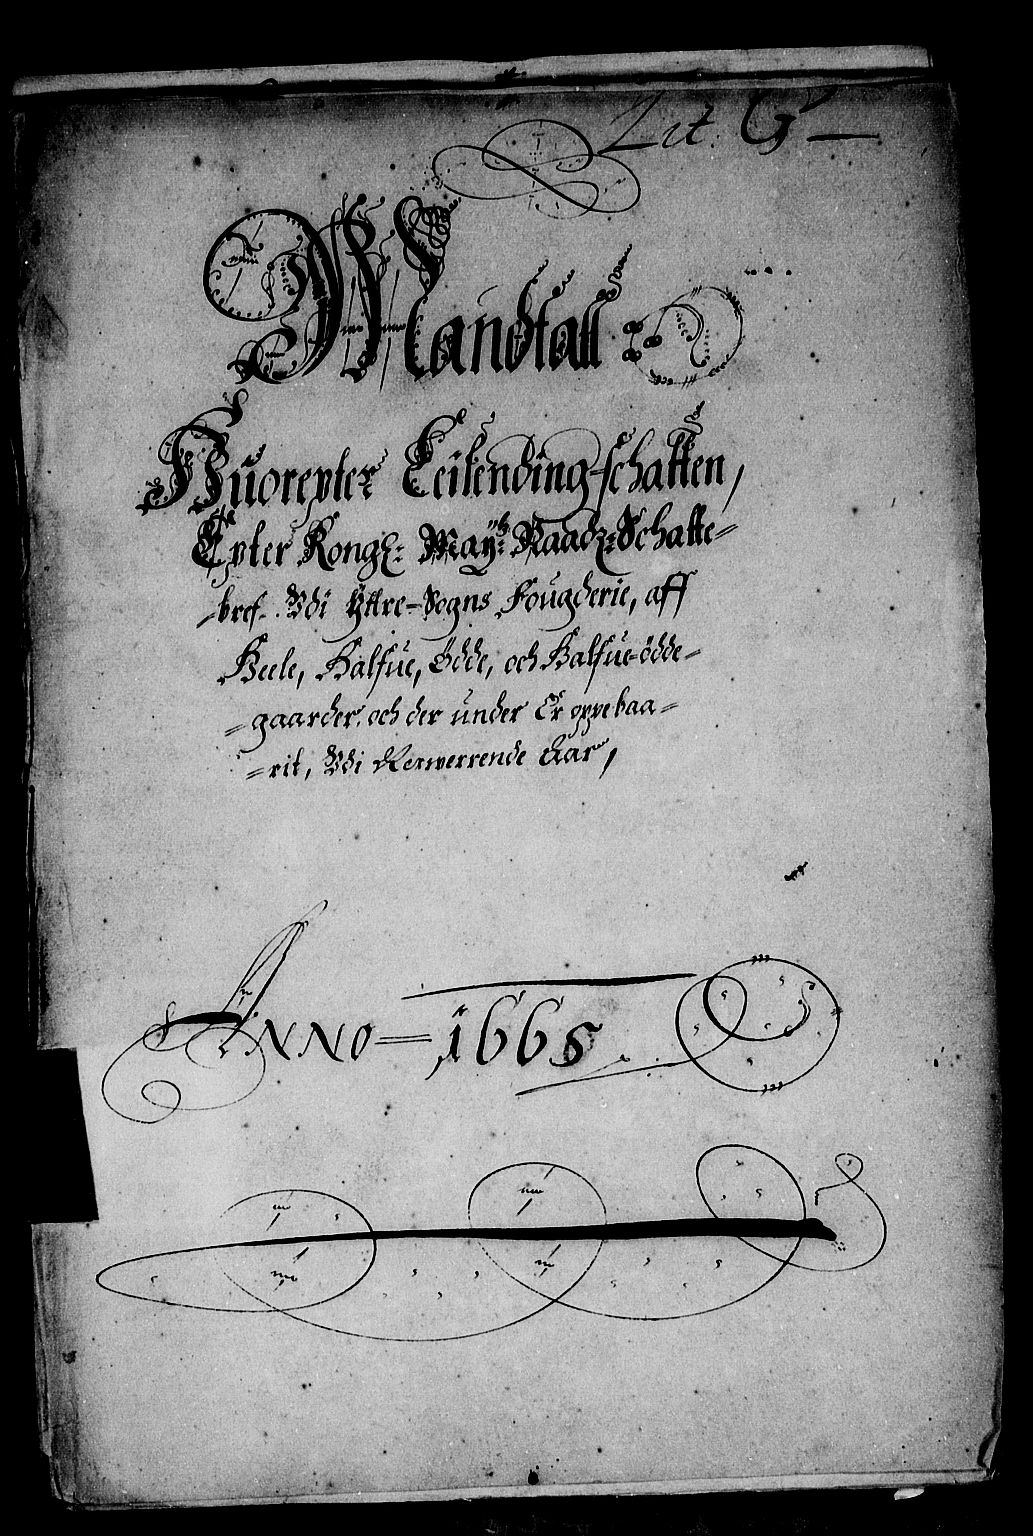 Lit. G
Mandtall
Huorepter Leilending-schatten,
Epter Kongl: May:tz Naadz: Schatte-
-bref. Vdi Yttre-Sogns Fougderie, aff
Heele, Halfue, Ödde, och Halfue-ödde-
-gaarder, och der under Er oppebaa-
-rit, Vdi Nerwerrende Aar,
Anno = 1665